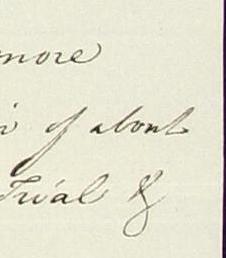 more
of about
Trial &